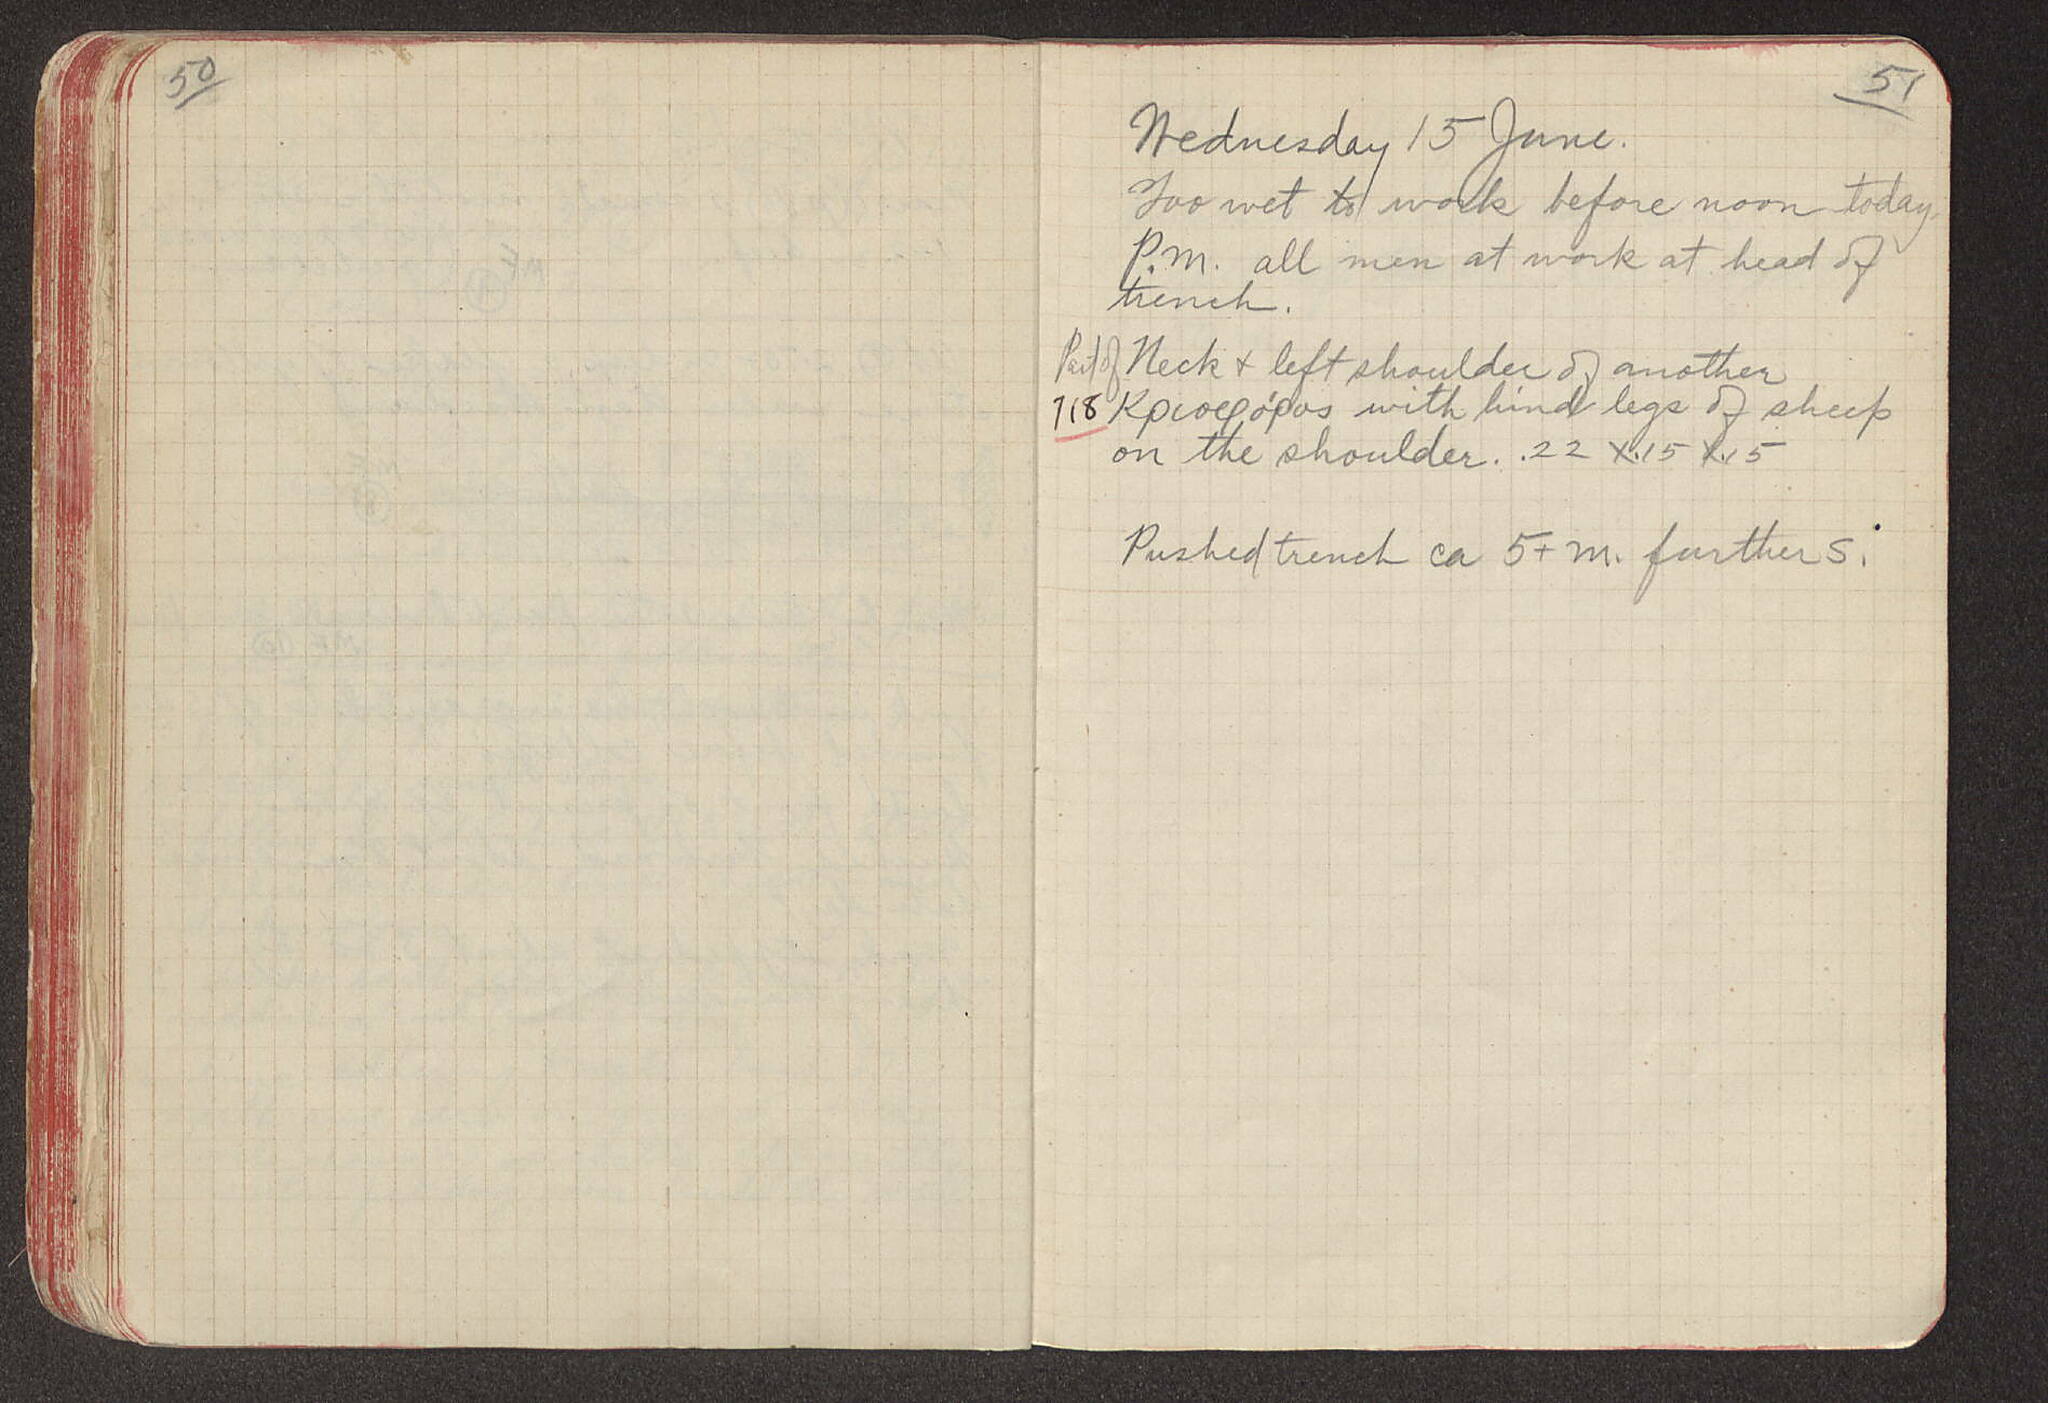 50
51
Wednesday 15 June.
Too wet to work before noon today.
P.M. all men at work at head of
trench.
Part of Neck + left shoulder of another
718 Κριοφόρος with hind legs of sheep
on the shoulder. .22 X.15 X.15
Pushed trench ca 5+ m. further S.